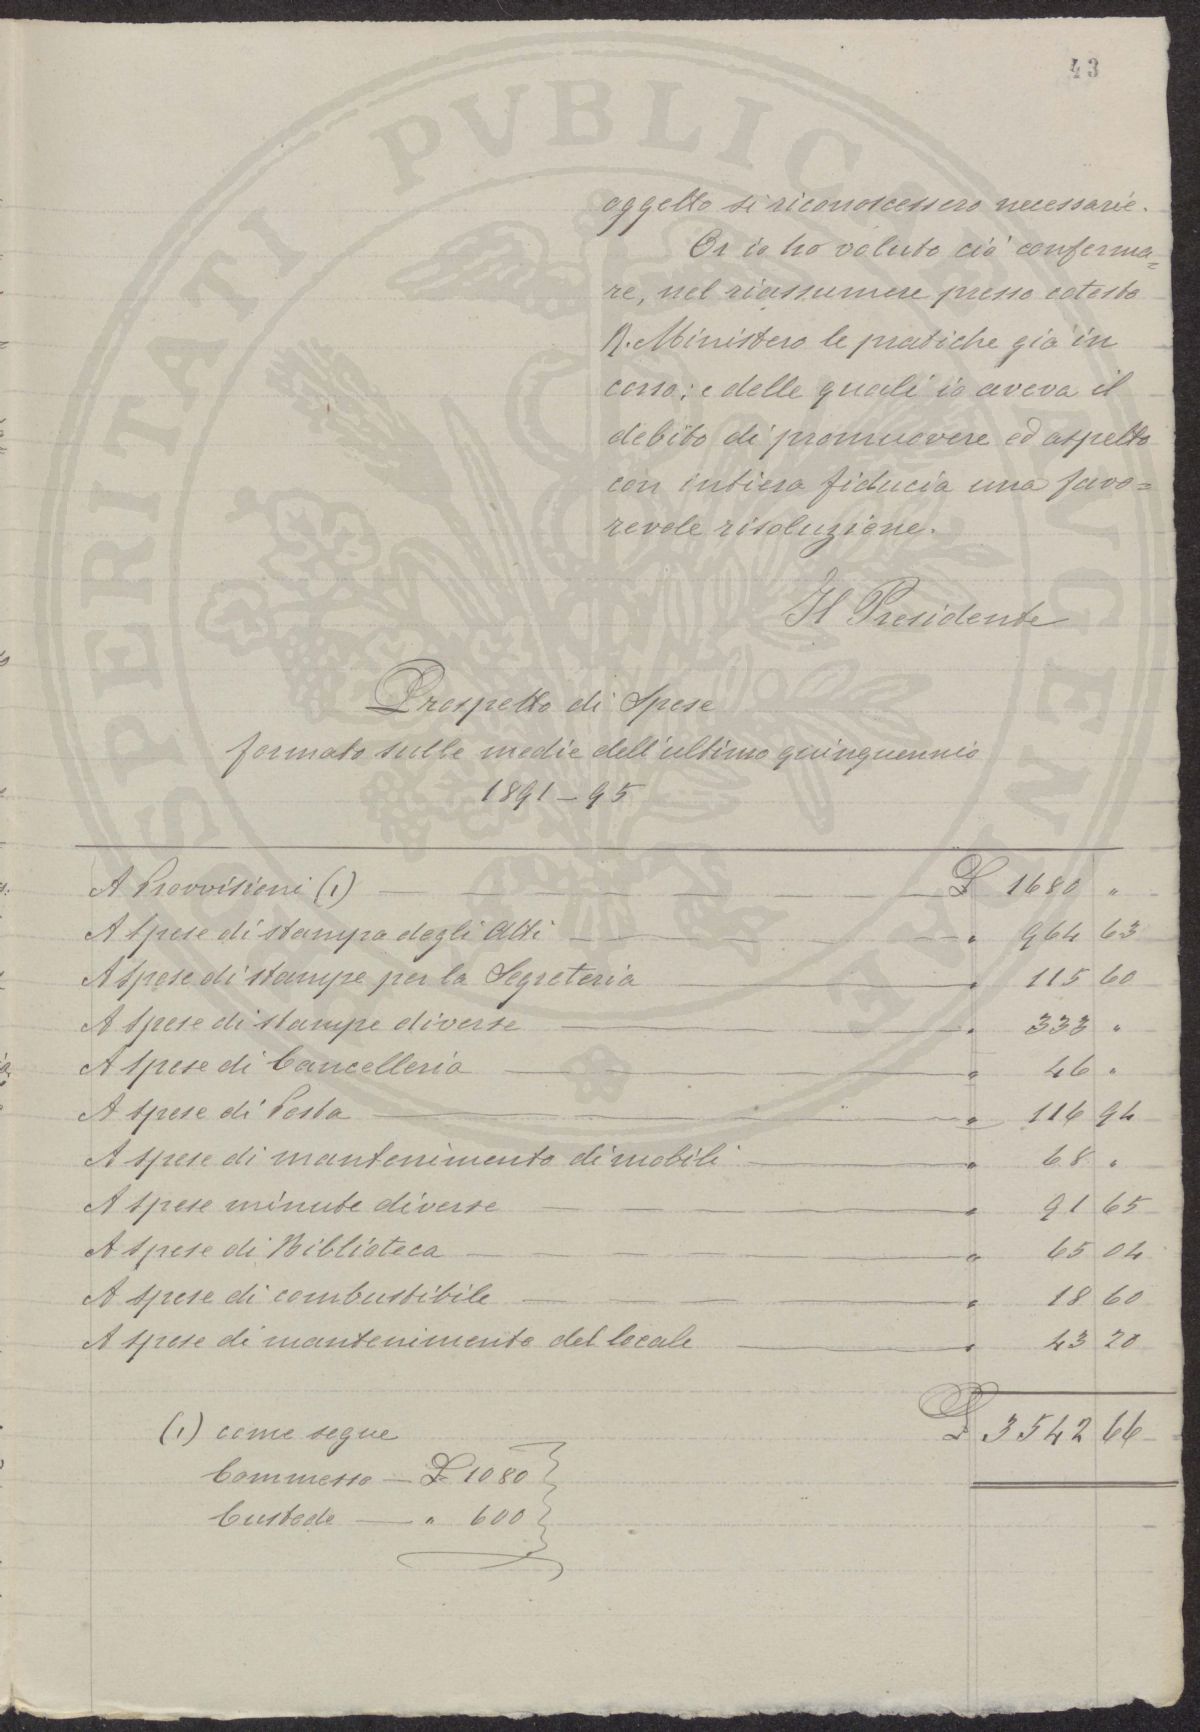 43
oggetto si riconoscessero necessarie.
Or io ho voluto ciò conferma=
re, nel riassumere presso cotesto
R. Ministero le pratiche già in
corso; e delle quali io aveva il
debito di promuovere ed aspetto
con intiera fiducia una favo=
revole risoluzione.
Il Presidente
Prospetto di Spese
formato sulle medie dell'ultimo quinquennio
1891-95
A Provvisioni (1) — £ 1680 "
A Spese di stampa degli Atti — " 964 63
A Spese di stampe per la Segreteria — " 115 60
A Spese di stampe diverse — " 333 "
A Spese di Cancelleria — " 46 "
A Spese di Posta — " 116 94
A Spese di mantenimento di mobili — " 68 "
A Spese minute diverse — " 91 65
A Spese di Biblioteca — " 65 04
A Spese di combustibile — " 18 60
A Spese di mantenimento del locale — " 43 20
£ 3542 66
(1) come segue
Commesso — £ 1080
Custode — " 600
PVBLICAE
PROSPERITATI
AVGENDAE